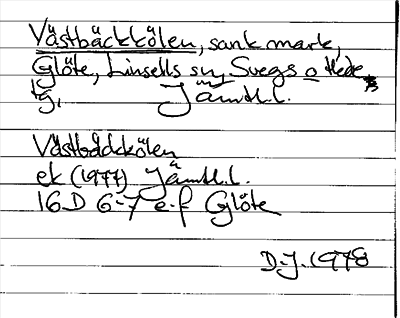 Västbäckkölen, sank mark,
Glöte, Linsells sn, Svegs o Hede
tg, Jämtl.l.
Västbäckkölen
ek (1977) Jämtl.l.
16D 6-7 e-f Glöte
D-J. 1978